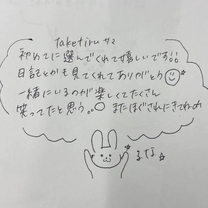 taketiru サマ
初めてに選んでくれて嬉しいです!!
日記とかも見てくれてありがとう
一緒にいるのが楽しくてたくさん
笑ってたと思う。。またほぐされにきてねの
るな